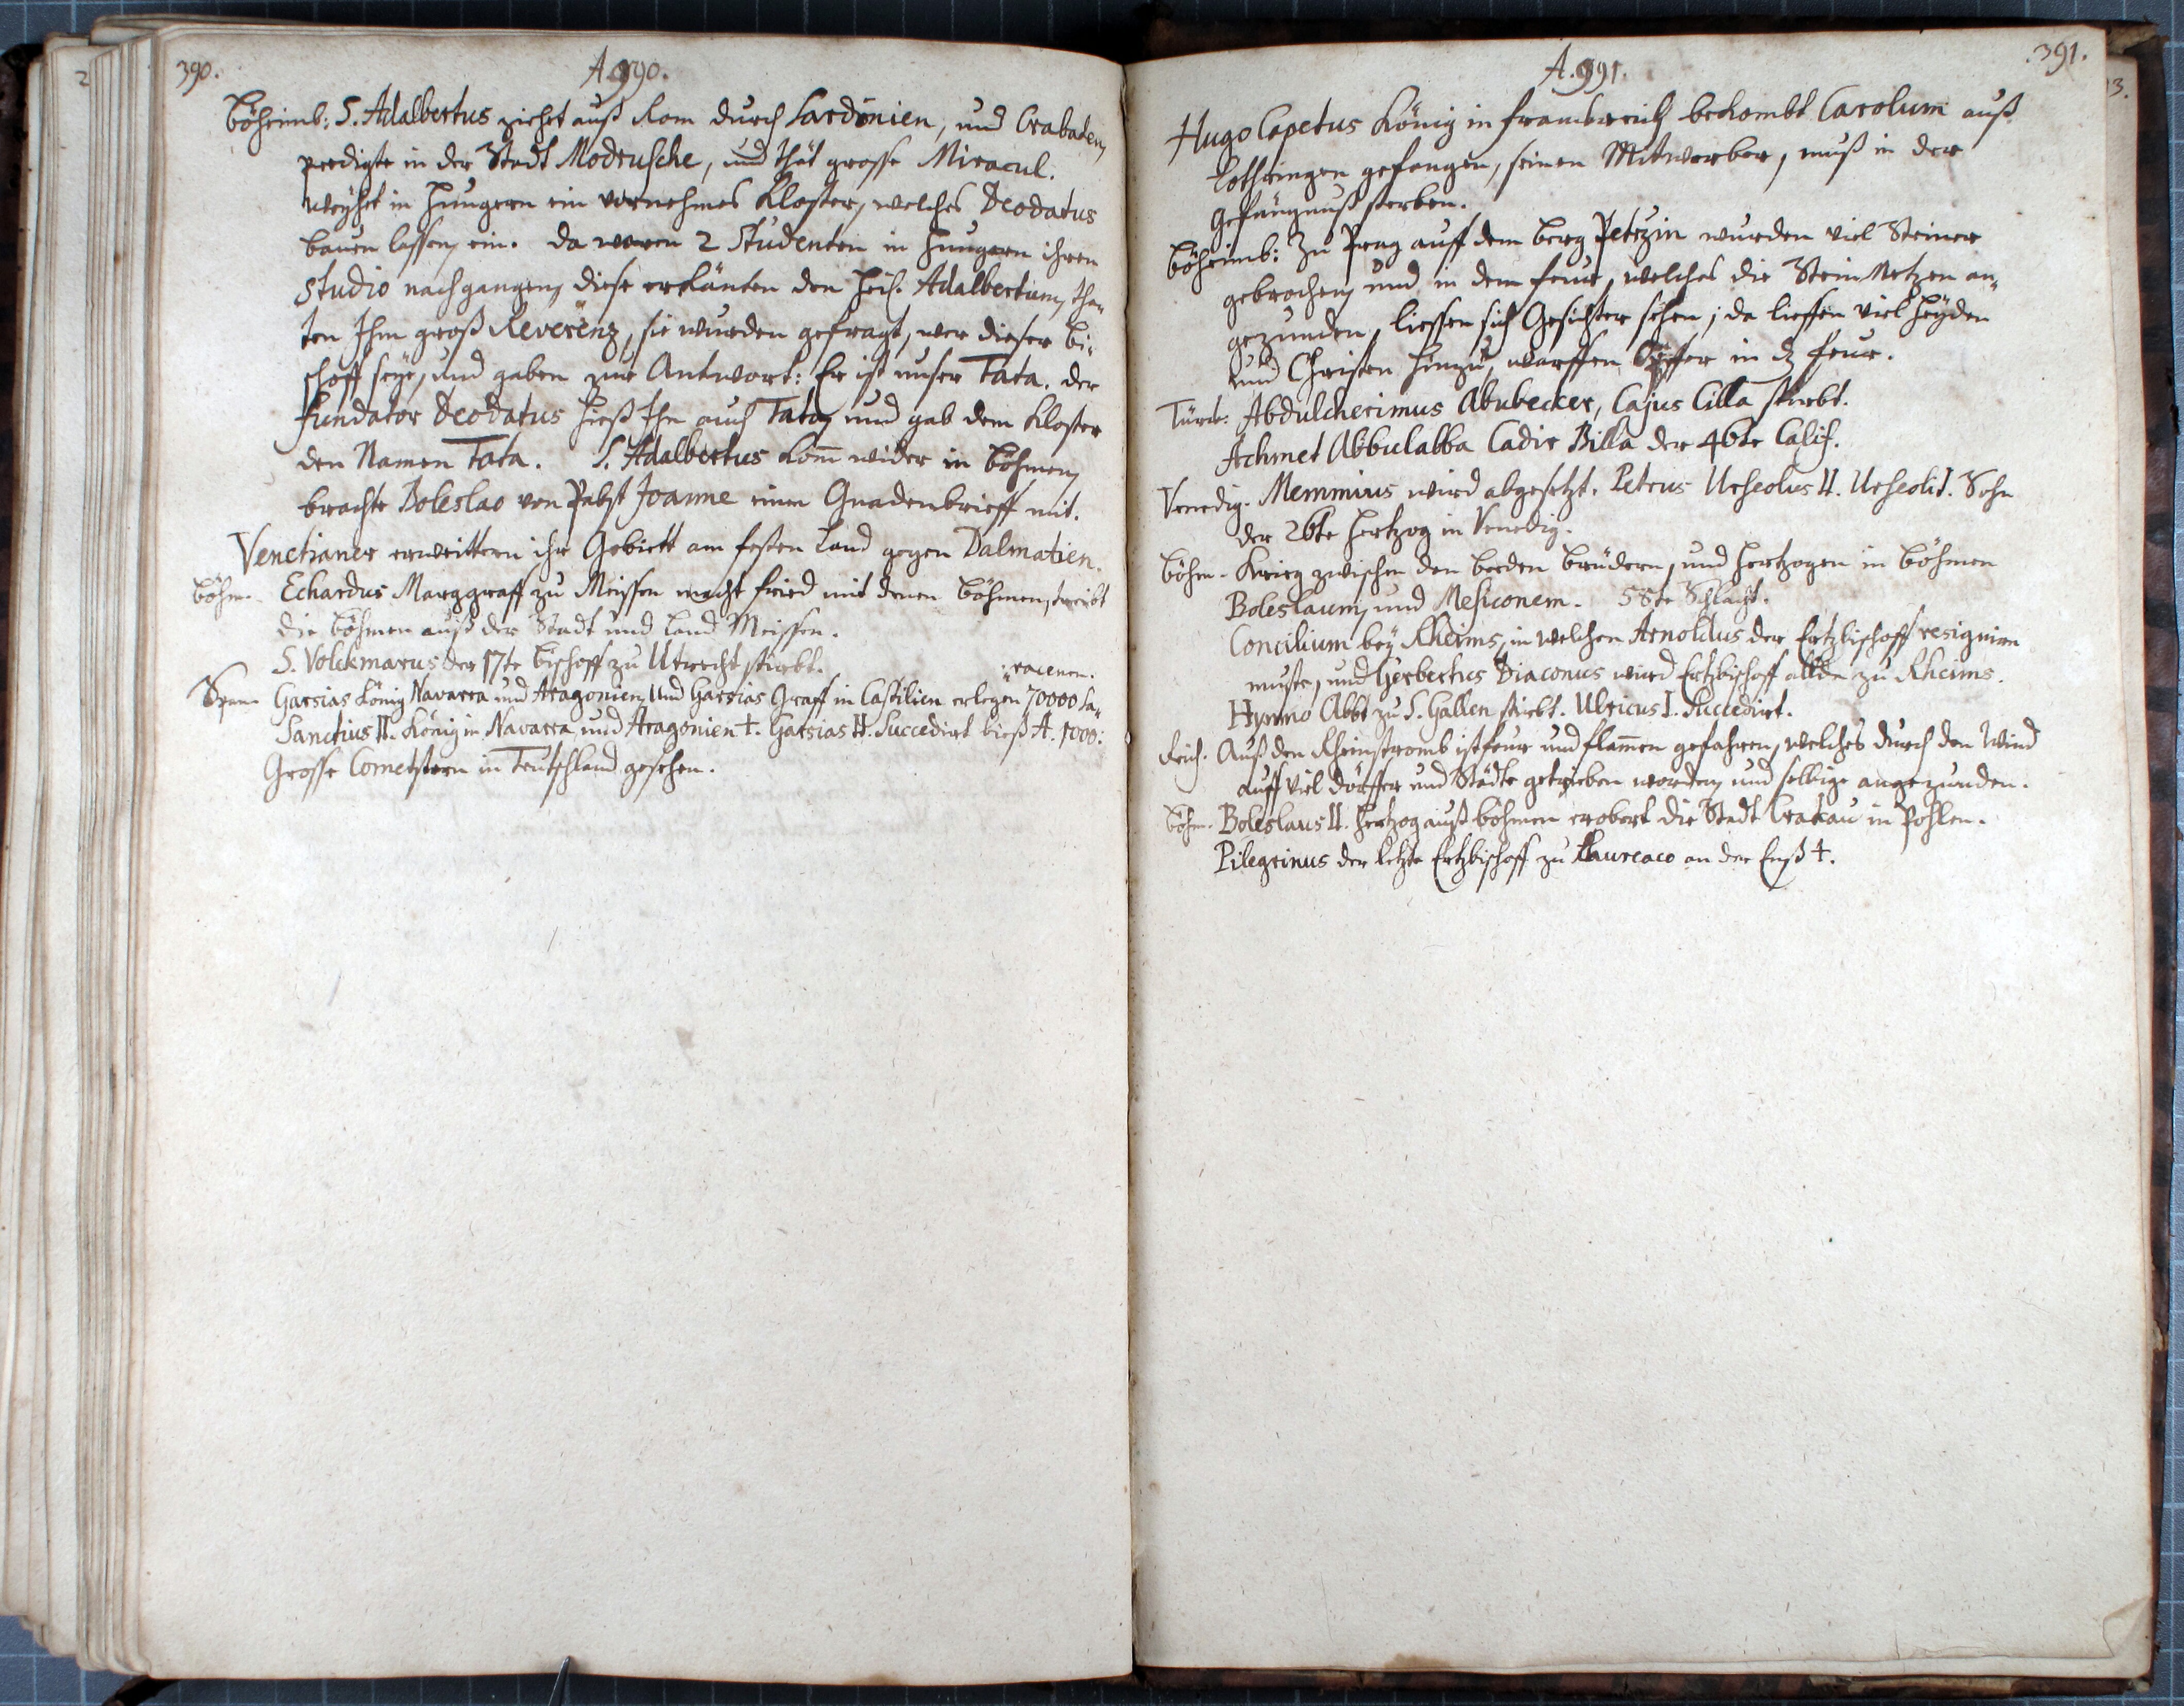 390.
A. 990.
Böheimb: S. Adalbertus ziehet auß Rom durch Sardinien, und Crabaten,
predigte in der Stadt Modrusche, und thät grosse Miracul.
Weyhet in Hungern ein vornehmes Kloster, welches Deodatus
bauen lassen, ein. Da waren 2 Studenten in Hungern ihren
Studio nachgangen, diese erkänten den Heil. Adalbertum, tha-
ten Ihm groß Reverenz, sie wurden gefragt, wer dieser Bi-
schoff seye, und gaben zur Antwort: Er ist unser Tata. der
fundator Deodatus hieß Ihn auch Tata, und gab dem Kloster
den Namen Tata. S. Adalbertus kom̄ wider in Böhmen,
brachte Boleslao von Pabst Joanne einen Gnadenbrieff mit.
Venetianer erweittern ihr Gebiett am festen Land gegen Dalmatien.
Böhm. Echardus Marggraff zu Meissen macht fried mit denen Böhmen, treibt
die Böhmen auß der Stadt und Land Meissen.
S. Volckmarus der 17te Bischoff zu Utrecht stirbt.
racenen.
Span. Garsias König Navarra und Aragonien, und Garsias Graff in Castilien erlegen 70000 Sa-
Sanctius II. König in Navarra und Aragonien †. Garsias II. Succedirt bieß A. 1000.
Grosse Cometstern in Teutschland gesehen.
391.
A. 991.
Hugo Capetus König in franckreich bekombt Carolum auß
Lothringen gefangen, seinen Mitwerber, muß in der
Gefängnuß sterben.
Böheimb: Zu Prag auff dem Berg Petrzin wurden viel Steiner
gebrochen, und in dem feuer, welches die SteinMetzen an-
gezunden, liessen sich Gesichter sehen; da lieffen viel Heyden
und Christen hinzu, warffen Opffer in dz feur.
Türck: Abdulcherimus Abubecker, Cajus Cilla stirbt.
Achmet Abbulabba Cadir Billa der 46te Calif.
Venedig. Memmius wird abgesetzt. Petrus Urseolus II. Urseoli I. Sohn
der 26te Hertzog in Venedig.
Böhm. Krieg zwischen den beeden Brüdern, und Hertzogen in Böhmen
Boleslaum, und Mesiconem. 55te Schlacht.
Concilium bey Rheims, in welchen Arnoldus der Ertzbischoff resigniren
muste, und Gerbertus Diaconus wird Ertzbischoff allda zu Rheims.
Hymmo Abbt zu S. Gallen stirbt. Ulricus I. Succedirt.
Reich. Auß den Rheinstromb ist feur und flam̄en gefahren, welches durch den Wind
auff viel Dörffer und Städte getrieben worden, und selbige angezunden.
Böhm. Boleslaus II. Hertzog auß Böhmen erobert die Stadt Crakau in Pohlen.
Pilegrinus der letzte Ertzbischoff zu Laureaco an der Enß †.